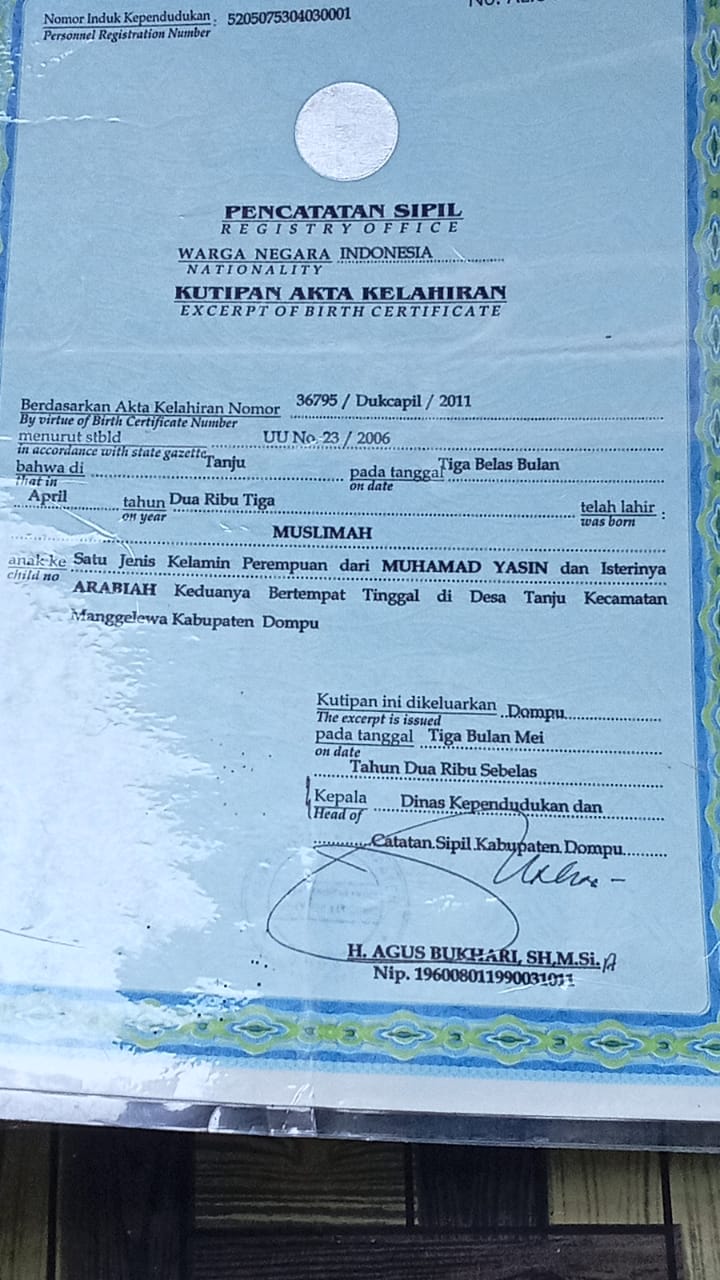 Nomor Induk Kependudukan : 5205075304030001
Personnel Registration Number
PENCATATAN SIPIL
REGISTRY OFFICE
WARGA NEGARA INDONESIA
NATIONALITY
KUTIPAN AKTA KELAHIRAN
EXCERPT OF BIRTH CERTIFICATE
Berdasarkan Akta Kelahiran Nomor 36795 / Dukcapil / 2011
By virtue of Birth Certificate Number
menurut stbld UU No 23 / 2006
in accordance with state gazette
bahwa di Tanju pada tanggal Tiga Belas Bulan
That in on date
April tahun Dua Ribu Tiga telah lahir :
on year was born
MUSLIMAH
anak ke Satu Jenis Kelamin Perempuan dari MUHAMAD YASIN dan Isterinya
child no
ARABIAH Keduanya Bertempat Tinggal di Desa Tanju Kecamatan
Manggelewa Kabupaten Dompu
Kutipan ini dikeluarkan Dompu
The excerpt is issued
pada tanggal Tiga Bulan Mei
on date
Tahun Dua Ribu Sebelas
Kepala Dinas Kependudukan dan
Head of
Catatan Sipil Kabupaten Dompu
H. AGUS BUKHARI, SH,M.Si.
Nip. 196008011990031011